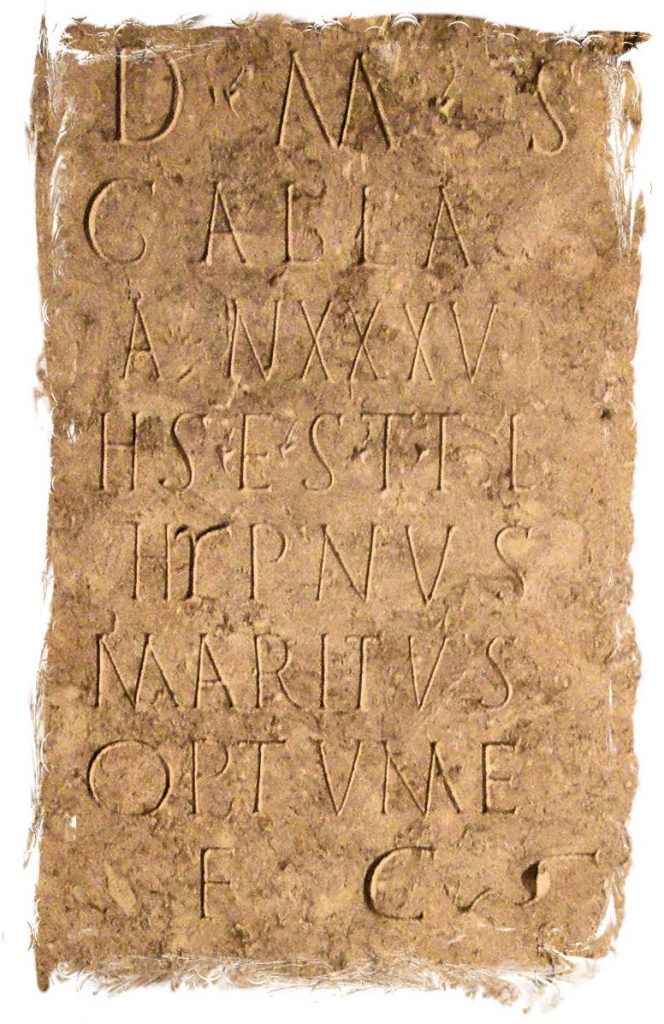 D · M · S
GALLA
AN XXXV
H S · E · S · T · T · L
HYPNVS
MARITVS
OPTVME
F C